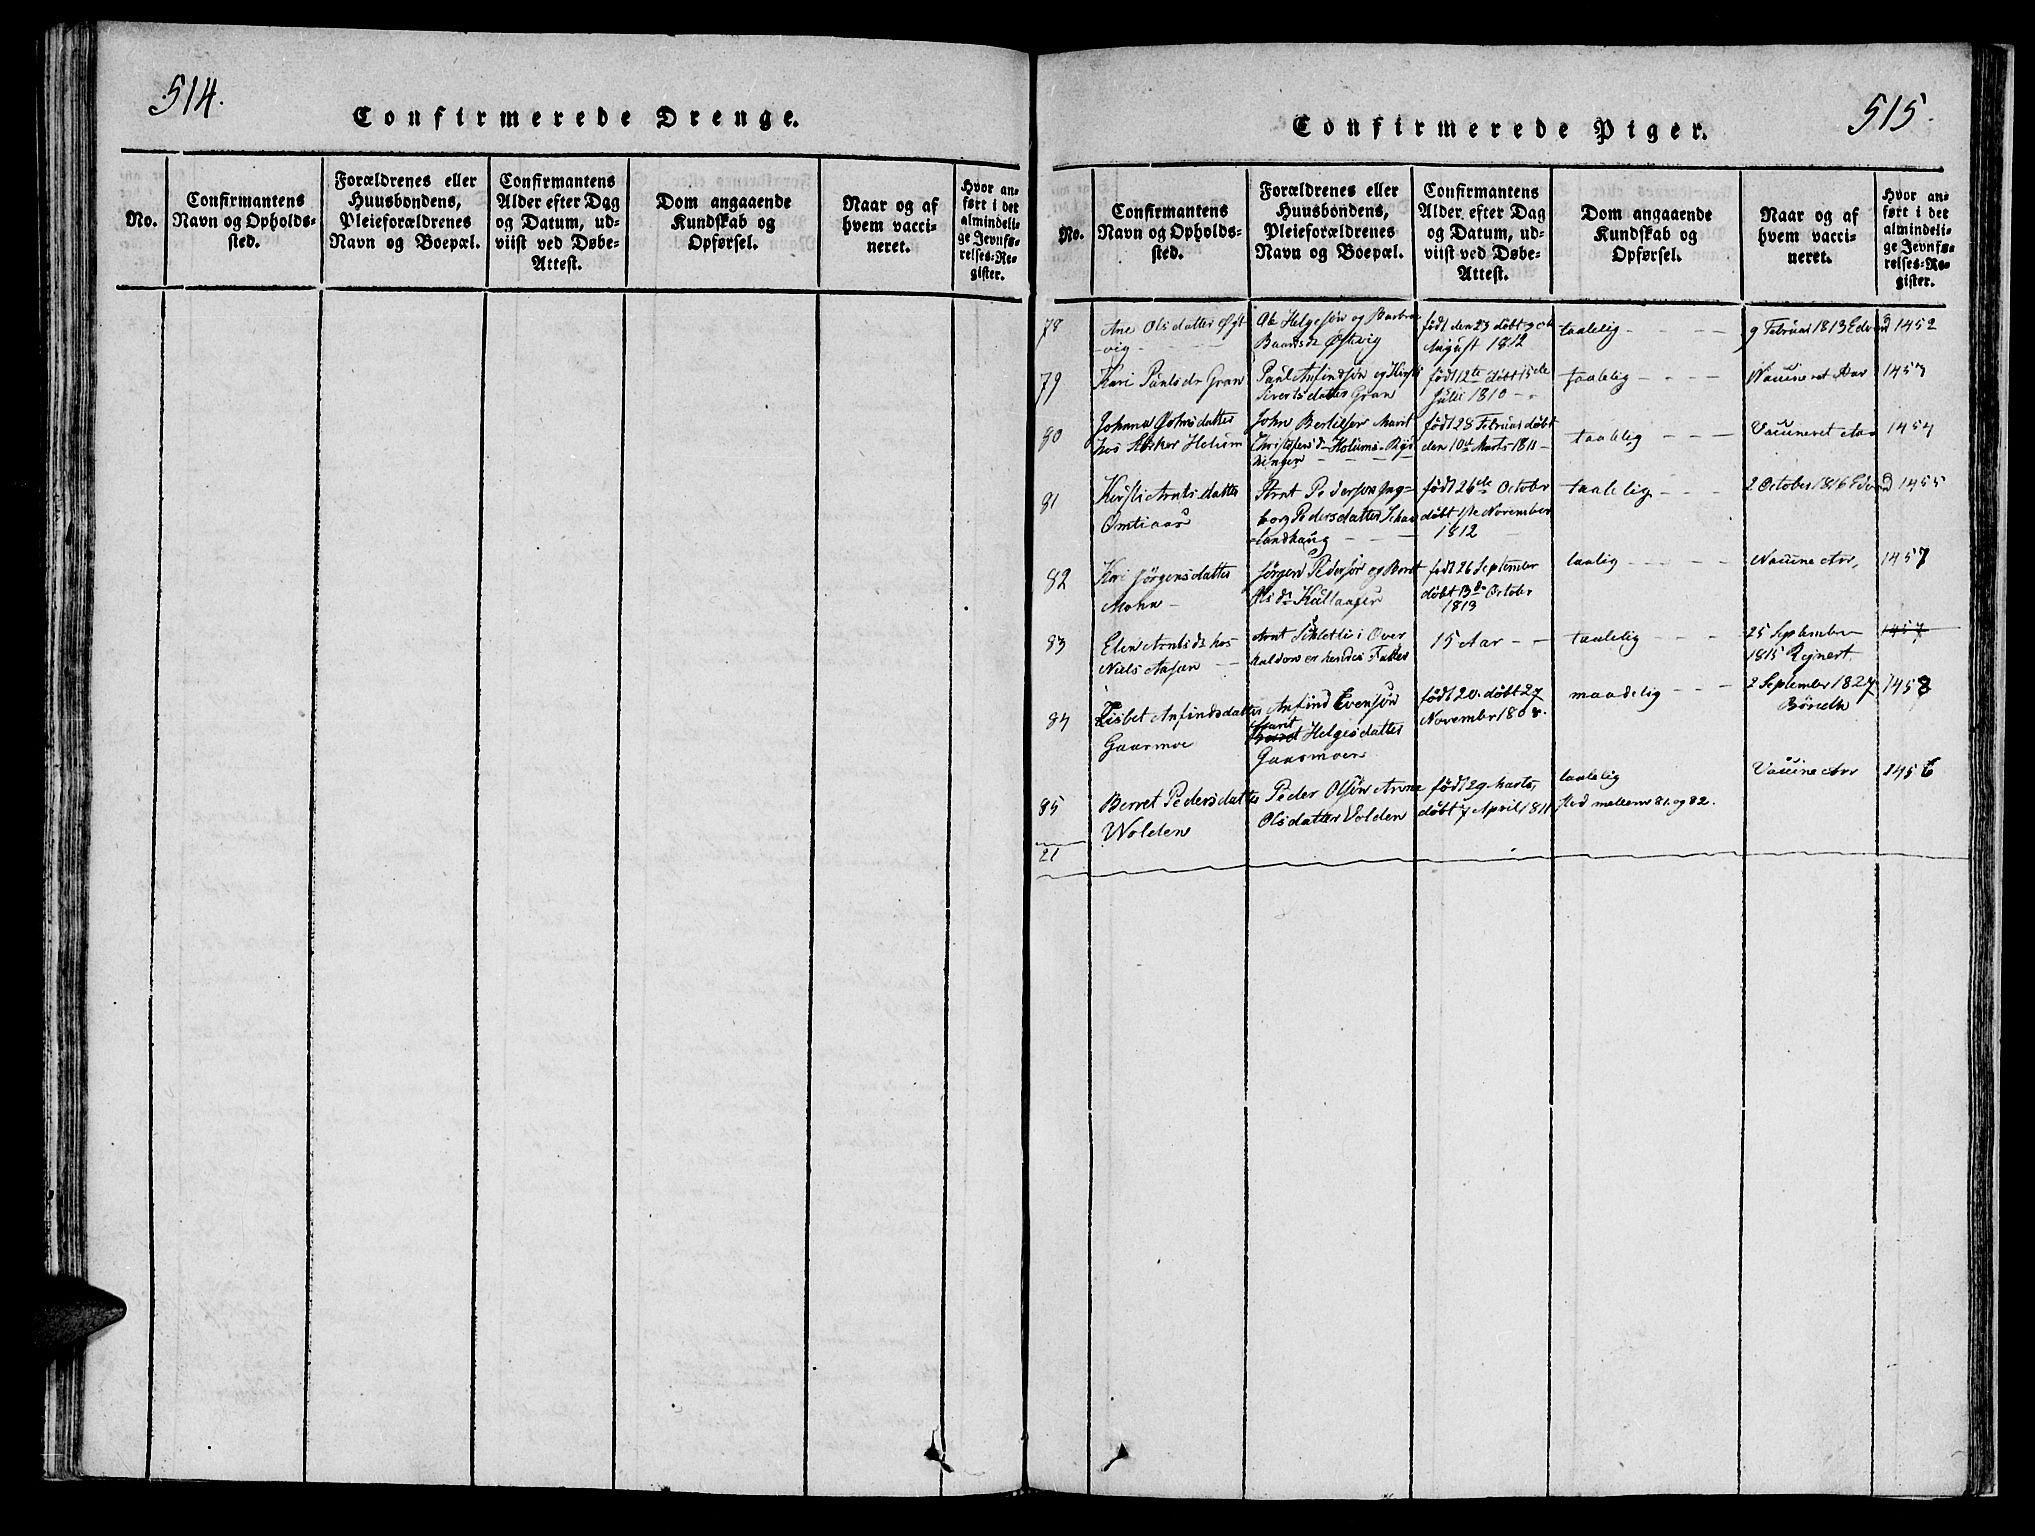 514.
Confirmerede Drenge.
No.
Confirmantens
Navn og Opholds-
sted.
Forældrenes eller
Huusbondens,
Pleieforældrenes
Navn og Boepæl.
Confirmantens
Alder efter Dag
og Datum, ud-
viist ved Døbe-
Attest.
Dom angaaende
Kundskab og
Opførsel.
Naar og af
hvem vacci-
neret.
Hvor an-
ført i det
almindeli-
ge Jevnfø-
relses-Re-
gister.
515.
Confirmerede Piger.
No.
Confirmantens
Navn og Opholds-
sted.
Forældrenes eller
Huusbondens,
Pleieforældrenes
Navn og Boepæl.
Confirmantens
Alder efter Dag
og Datum, ud-
viist ved Døbe-
Attest.
Dom angaaende
Kundskab og
Opførsel.
Naar og af
hvem vacci-
neret.
Hvor an-
ført i det
almindeli-
ge Jevnfø-
relses-Re-
gister.
78
Ane Olsdatter Øst
-vig
Ole Helgesøn og Barbra
Baardsdr Østvig
født den 23 døbt
August 1812
taalelig
9 Februar 1813 Edvard
1452
79
Kari Paulsdr Gran
Paul Anfindsøn og Kirsti
Sivertsdatter Gran
født 12te døbt 15de
Julii 1810
taalelig
Vaccineret Aar
1453
80
Johana Johnsdatter
hos Helum
John Bertelsøn Marit
Christophersdr Holums-Ryd
ningen
født 28 Februar døbt
den 10de Marts 1811
taalelig
Vaccineret Aar
1454
81
Kirsti Arntsdatter
Omtiaas
Arnt Pedersøn Ing-
borg Pedersdatter
landhaug
født 26de October
døbt 1ste November
1812
taalelig
2 October 1816 Edvard
1455
82
Kari Jørgensdatter
Mohn
Jørgen Pedersøn og Beret
Olsdr
født 26 September
døbt 13de October
1813
taalig
Vaccine Arr,
1457
83
Elen Arntsdr hos
Niels Aasen
Arnt i Over
halden er hendes Fader
15 Aar
taalelig
25 September
1815 Rejnert
1457
84
Lisbet Anfindsdatter
Gaasmoe
Anfind Evensøn
Marit
Beret Helgesdatter
Gaasmoen
født 20. døbt 27
November 1808.
maadelig
2 September 1827
1458
85
Berret Pedersdatter
Wolden
Peder Olsøn Anne
Olsdatter Volden
født 29 Marts,
døbt 7 April 1811
taalelig
sted mellem 81. og 82.
Vaccine Arr
1456
21